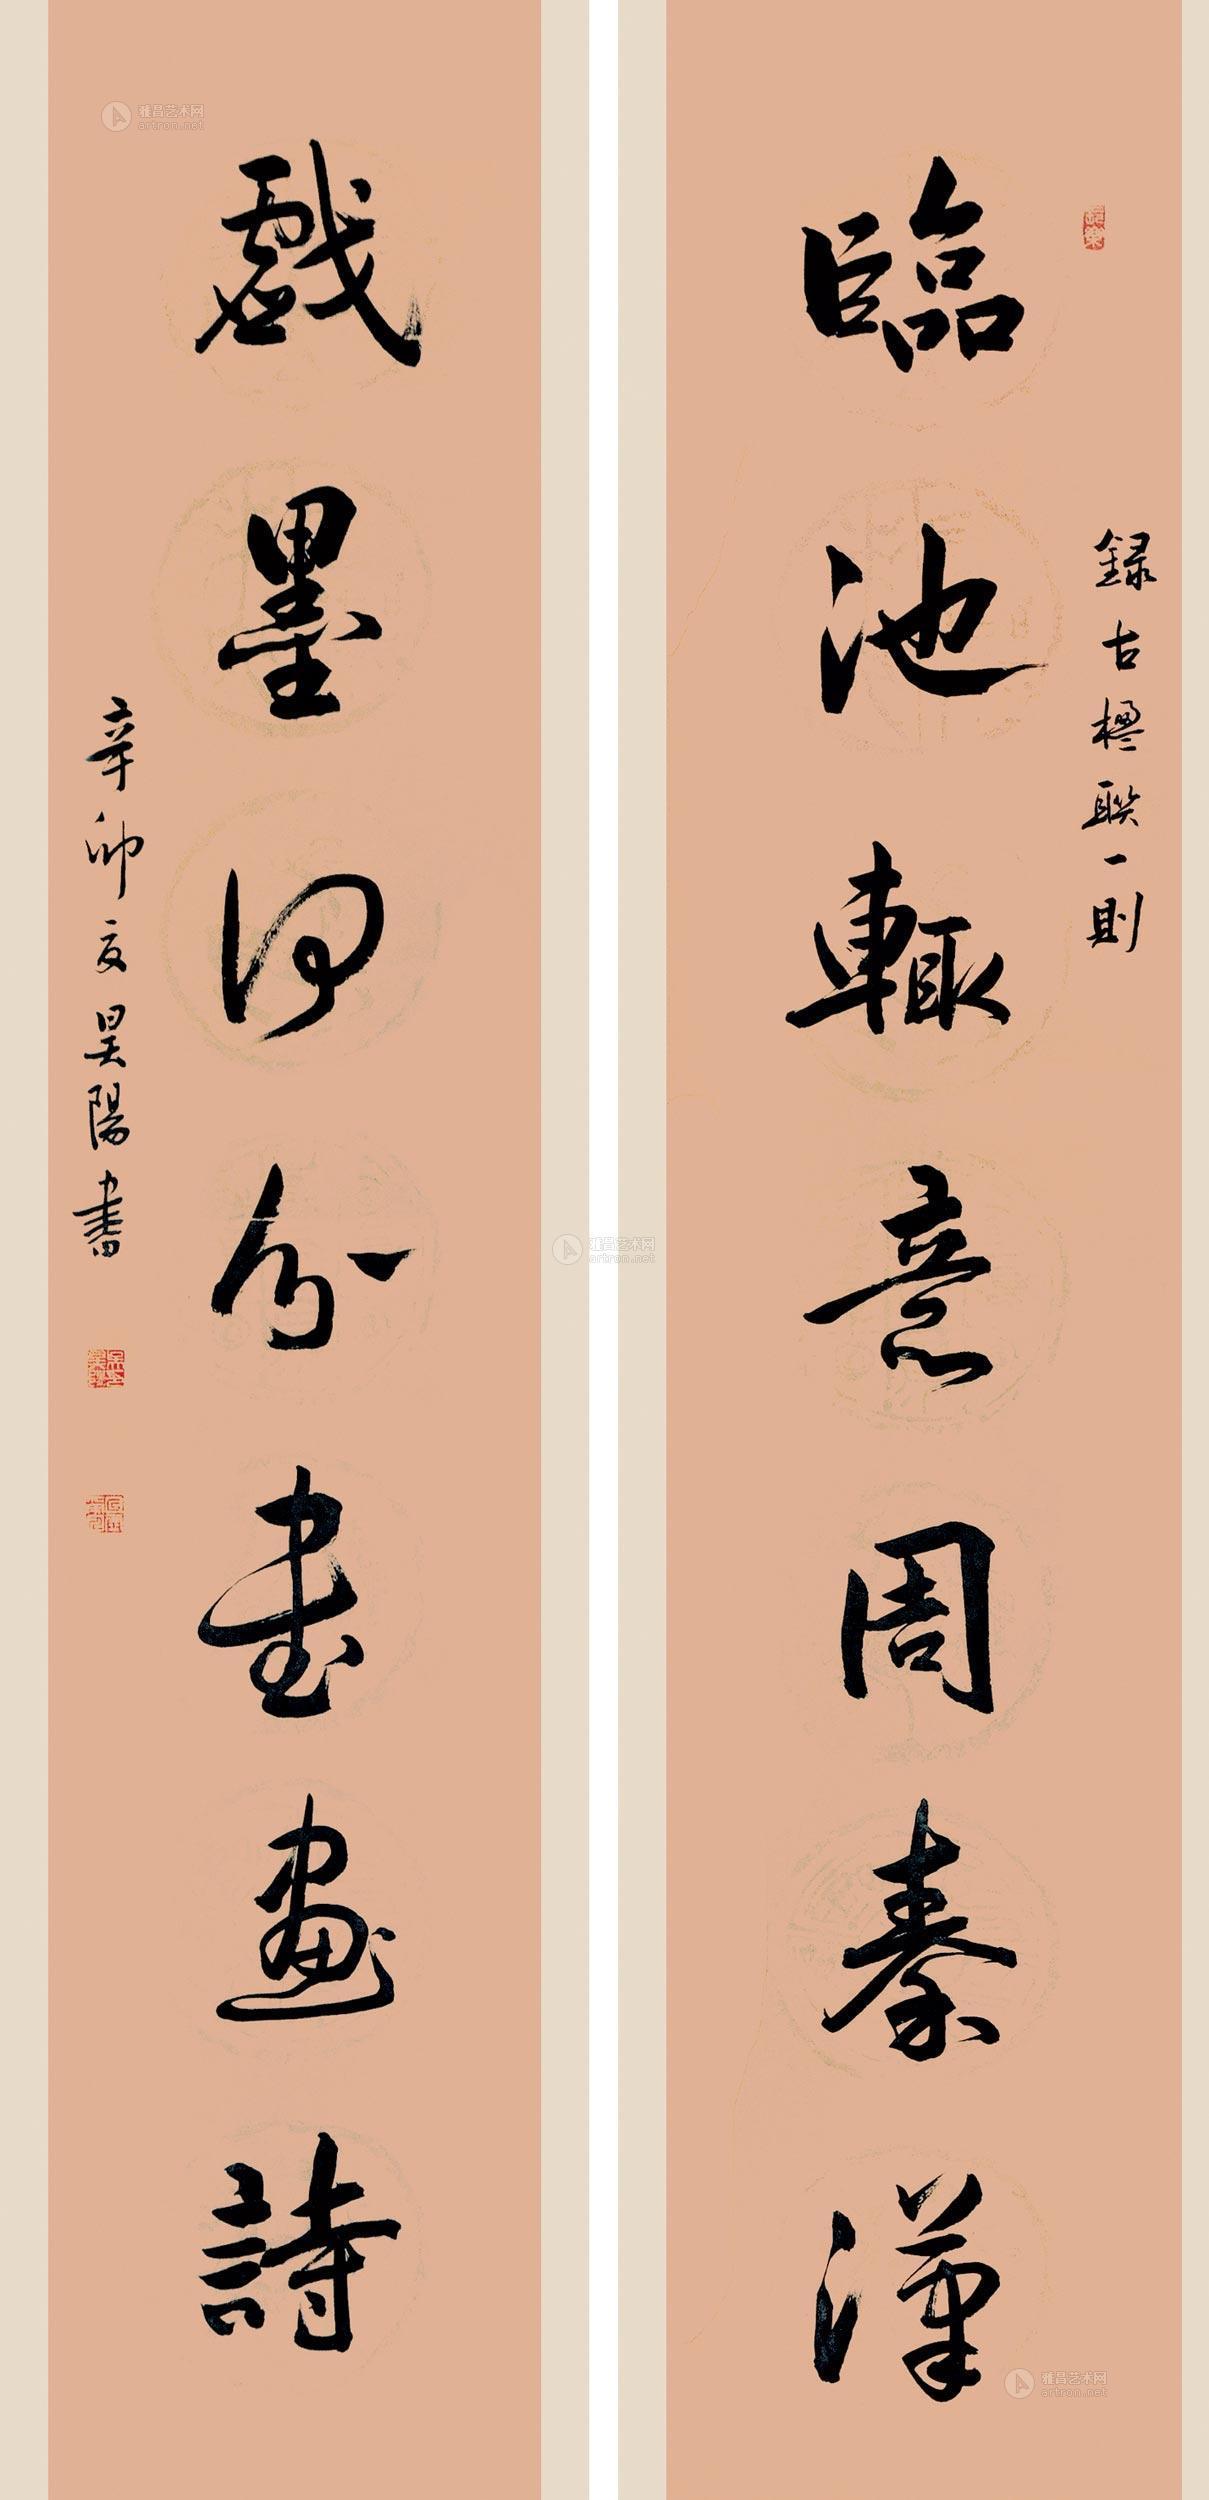 錄古楹聯一則
臨池輒意周秦漢
戲墨何分書畫詩
辛卯夏昊陽書
雅昌艺术网
artron.net
雅昌艺术网
artron.net
雅昌艺术网
artron.net